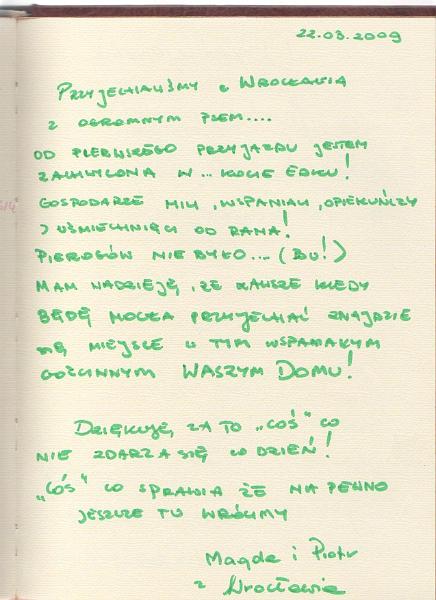 22.03.2009
PRZYJECHALIŚMY z WROCŁAWIA
Z OGROMNYM PSEM....
OD PIERWSZEGO PRZYJAZDU JESTEM
ZACHWYCONA W... KOCIE EDKU!
GOSPODARZE MILI, WSPANIALI, OPIEKUŃCZY
I UŚMIECHNIĘCI OD RANA!
PIEROGÓW NIE BYŁO... (BU!)
MAM NADZIEJĘ, ŻE ZAWSZE KIEDY
BĘDĘ MOGŁA PRZYJECHAĆ ZNAJDZIE
SIĘ MIEJSCE W TYM WSPANIAŁYM
GOŚCINNYM WASZYM DOMU!
DZIĘKUJĘ ZA TO „COŚ" CO
NIE ZDARZA SIĘ CO DZIEŃ!
„COŚ" CO SPRAWIA ŻE NA PEWNO
JESZCZE TU WRÓCIMY
Magda i Piotr
z Wrocławia